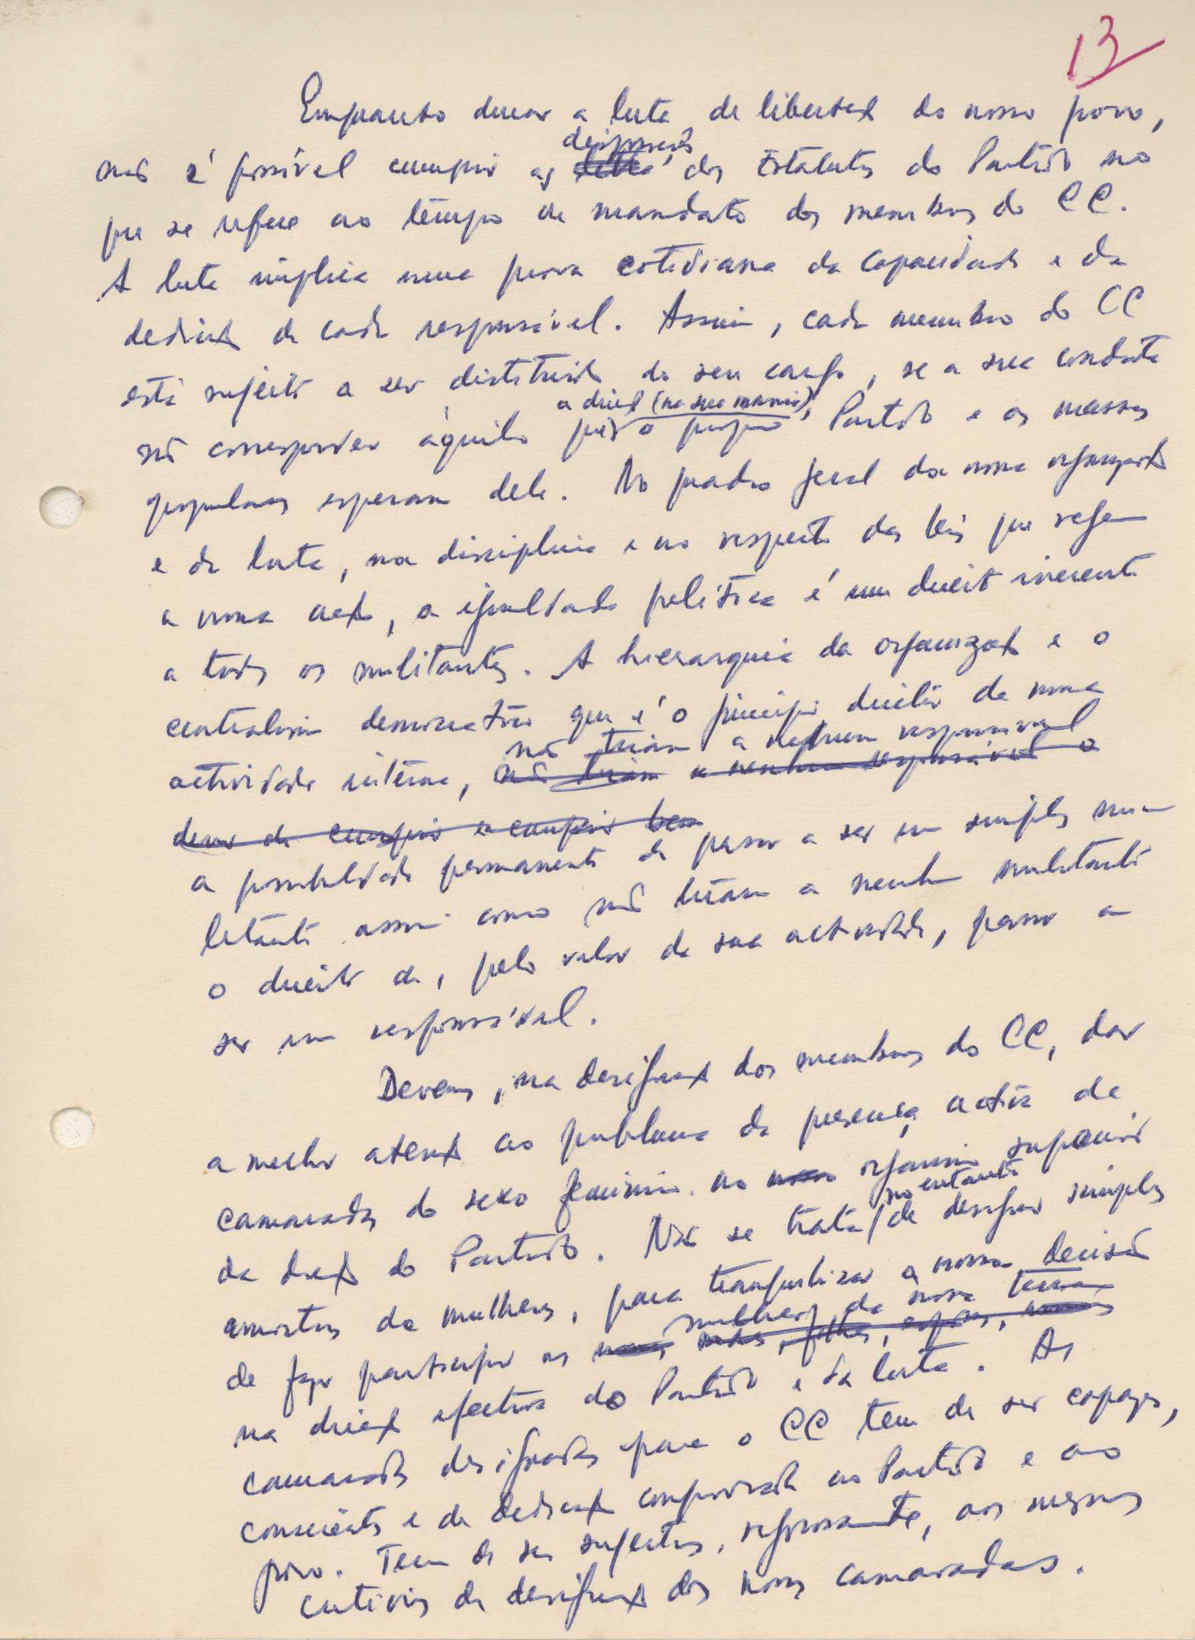 13
Enquanto durar a luta de libertação do nosso povo,
disposições
não é possível cumprir as dos Estatutos do Partido no
que se refere ao tempo de mandato dos membros do CC.
A luta implica uma prova cotidiana da capacidade e da
dedicação de cada responsável. Assim, cada membro do CC
está sujeito a ser distituido do seu cargo, se a sua conduta
a direcção (na sua maioria),
não corresponder àquilo que o próprio Partido e as massas
populares esperam dele. No quadro geral da nossa organização
e da luta, na disciplina e no respeito das leis que regem
a nossa acção, a igualdade política é um direito inerente
a todos os militantes. A hierarquia da organização e o
centralismo democrático que é o princípio director da nossa
não tiram a nenhum responsável
actividade interna, não tiram a nenhum responsável o
dever de cumprir e cumprir bem
a possibilidade permanente de passar a ser um simples mi-
litante assim como não tiram a nenhum militante
o direito de, pelo valor da sua actividade, passar a
ser um responsável.
Devemos, na designação dos membros do CC, dar
a melhor atenção ao problema da presença activa de
camaradas do sexo feminino no organismo superior
no entanto
da direcção do Partido. Não se trata de designar simples
amostras de mulheres, para tranquilizar a nossa decisão
mulheres da nossa terra
de fazer participar as mães, filhas, esposas,
na direcção efectiva do Partido e da luta. As
camaradas designadas para o CC tem de ser capazes,
conscientes e de dedicação comprovada ao Partido e ao
povo. Tem de ser sujeitas, rigorosamente, aos mesmos
critérios de designação dos nossos camaradas.